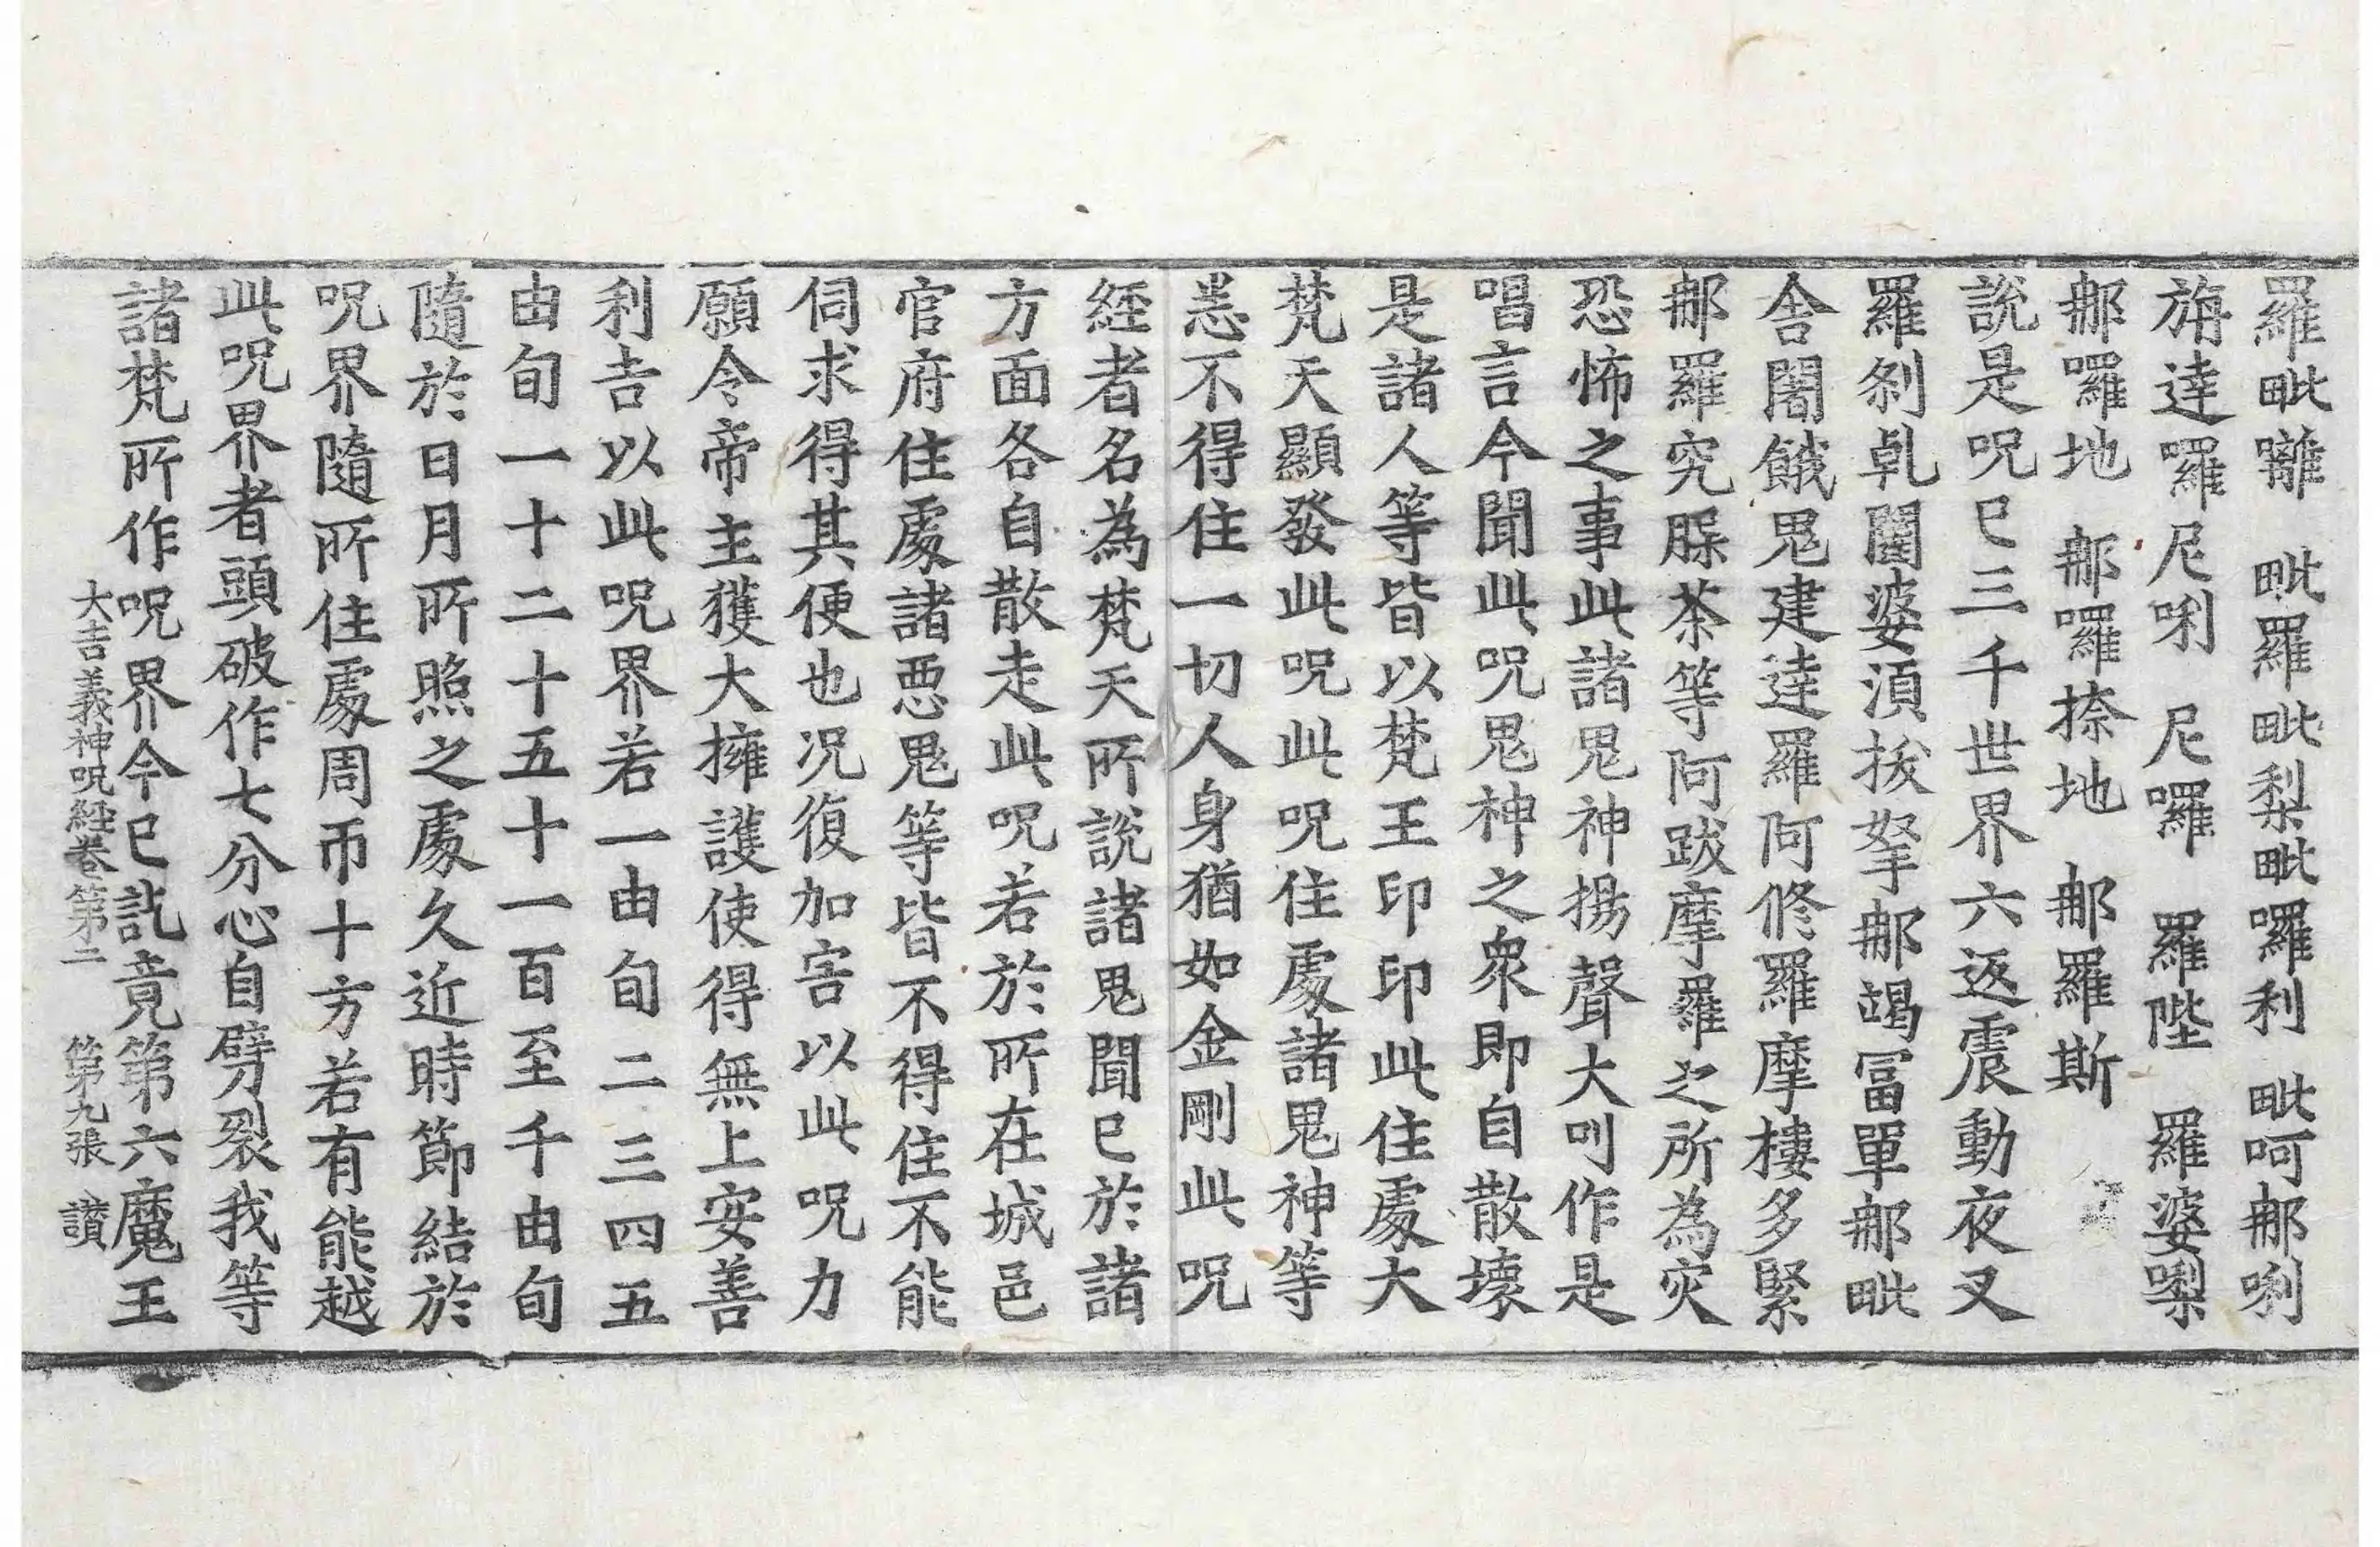 羅毗囄　毗羅毗梨毗囉利　毗呵那唎
旃達囉尼唎　尼囉　羅陛　羅婆㗚
那囉地　那囉捺地　那羅斯
說是呪已三千世界六返震動夜叉
羅剎乹闥婆湏拔拏那竭冨單那毗
舍闍餓鬼建達羅阿修羅摩樓多緊
那羅究脲茶等阿跋摩羅之所為灾
恐怖之事此諸鬼神揚聲大叫作是
唱言今聞此呪鬼神之衆即自散壞
是諸人等皆以梵王印印此住處大
梵天顯發此呪此呪住處諸鬼神等
恙不得住一切人身猶如金剛此呪
経者名為梵天所說諸鬼聞已於諸
方面各自散走此呪若於所在城邑
官府住處諸惡鬼等皆不得住不能
伺求得其便也况復加害以此呪力
願令帝主獲大擁護使得無上安善
利吉以此呪界若一由旬二三四五
由旬一十二十五十一百至千由旬
隨於日月所照之處久近時節結於
呪界隨所住處周帀十方若有能越
此呪界者頭破作七分心自劈裂我等
諸梵所作呪界今已訖竟第六魔王
大吉義神呪経卷第二　第九張　讃